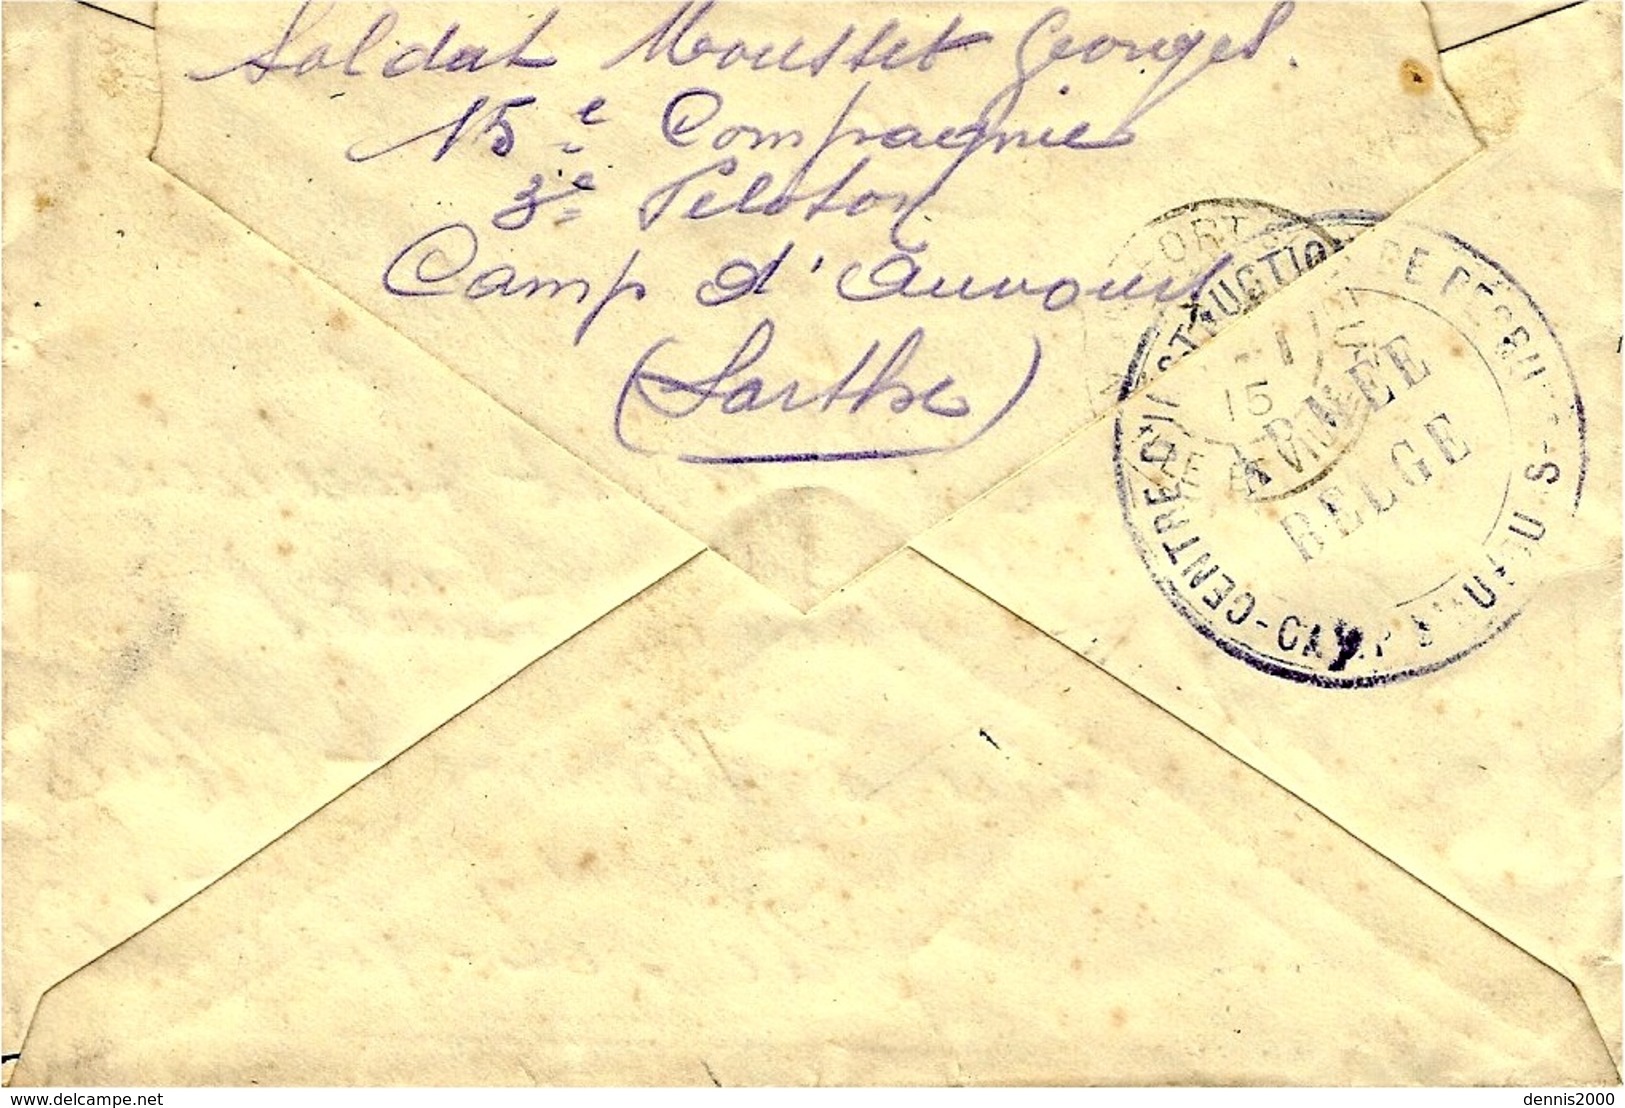 Soldat Mousset Georges.
15e Compagnie
3e Peloton
Camp d'Auvours
(Sarthe)
CENTRE D'INSTRUCTION
CAMP D'AUVOURS
ARMÉE
BELGE
15
delcampe.net
dennis2000